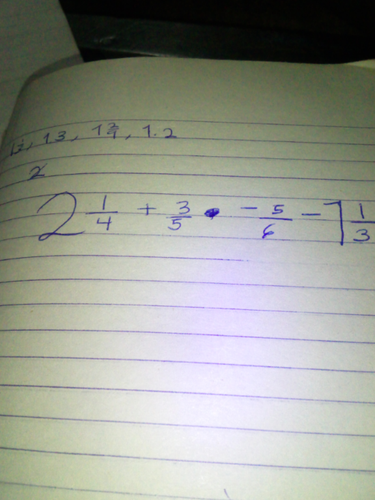 13, 1 3/4, 1.2
2
2 1/4 + 3/5 • -5/6 - 1 1/3